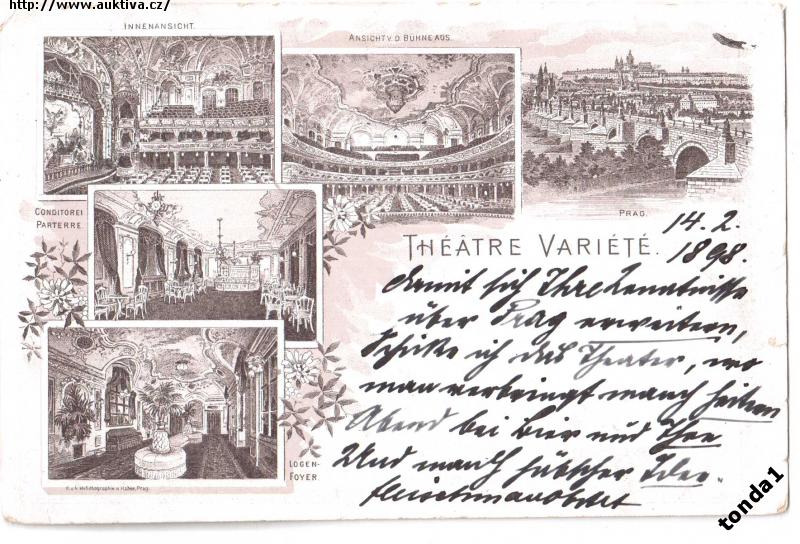 http://www.auktiva.cz/
INNENANSICHT.
ANSICHT V. D. BÜHNE AUS.
CONDITOREI
PARTERRE.
PRAG.
THÉÂTRE VARIÉTÉ.
14. 2.
1898.
Damit sich Ihre Kenntnisse
über Prag erweitern,
schicke ich das Theater, wo
man verbringt manch heitern
Abend bei Bier und Thee
Und manch hübscher Idee.
LOGEN-
FOYER.
tonda1